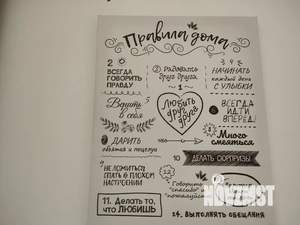 Правила дома
2
ВСЕГДА
ГОВОРИТЬ
ПРАВДУ
Радовать
друг друга
НАЧИНАТЬ
каждый день
С УЛЫБКИ
1
Любить
друг
друга
Верить
в себя
ВСЕГДА
ИДТИ
ВПЕРЕД!
ДАРИТЬ
объятия и поцелуи
Много
смеяться
9
НЕ ЛОЖИТЬСЯ
СПАТЬ В ПЛОХОМ
НАСТРОЕНИИ
10
ДЕЛАТЬ СЮРПРИЗЫ
11. Делать то,
что ЛЮБИШЬ
12
Говорить
спасибо и
пожалуйста
14. ВЫПОЛНЯТЬ ОБЕЩАНИЯ